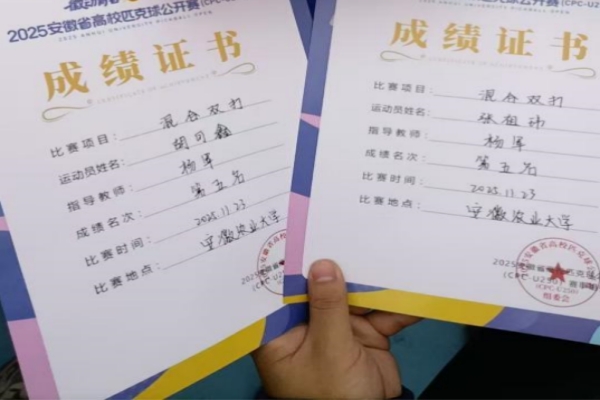 2025安徽省高校匹克球公开赛
2025 ANHUI UNIVERSITY PICKLEBALL OPEN
成绩证书
比赛项目: 混合双打
运动员姓名: 胡可鑫
指导教师: 杨军
成绩名次: 第五名
比赛时间: 2025.11.23
比赛地点: 安徽农业大学
2025安徽省
(CPC-U250)
2025安徽省高校匹克球公开赛(CPC-U2
成绩证书
CERTIFICATE OF ACHIEVEMENT
比赛项目: 混合双打
运动员姓名: 张祖祎
指导教师: 杨军
成绩名次: 第五名
比赛时间: 2025.11.23
比赛地点: 安徽农业大学
2025安徽省高校匹克球公
(CPC-U250) 赛事
组委会